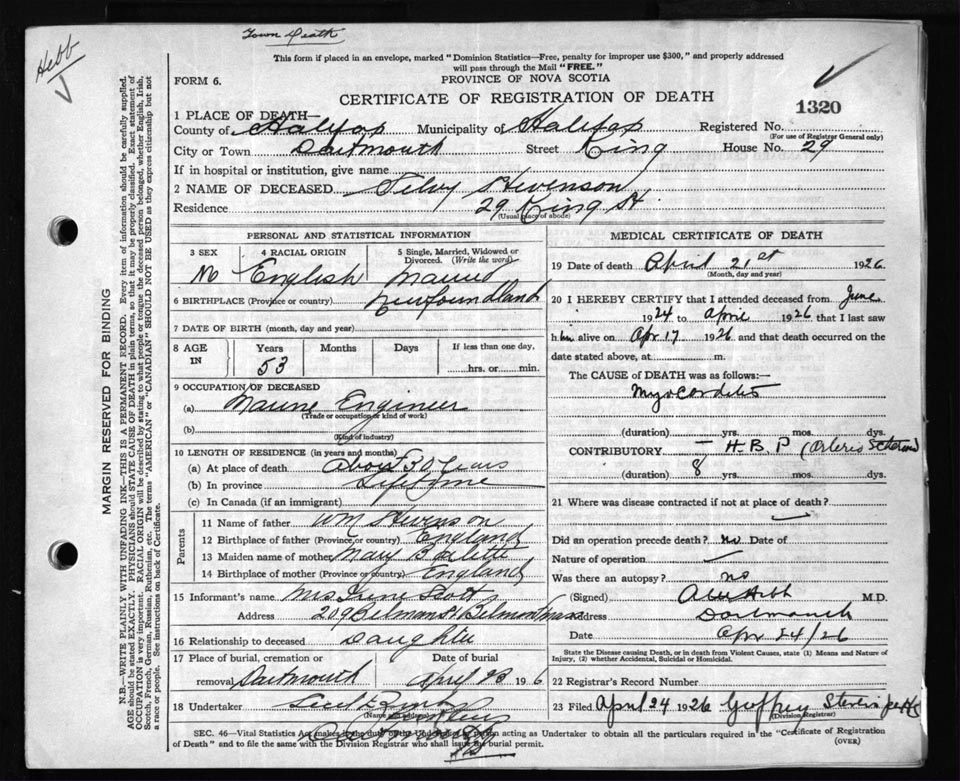 Town Death
Hebb
This form if placed in an envelope, marked "Dominion Statistics—Free, penalty for improper use $300," and properly addressed
will pass through the Mail "FREE."
FORM 6.
PROVINCE OF NOVA SCOTIA
CERTIFICATE OF REGISTRATION OF DEATH
1320
1 PLACE OF DEATH—
County of Halifax Municipality of Halifax Registered No.
(For use of Registrar General only)
City or Town Dartmouth Street King House No. 29
If in hospital or institution, give name
2 NAME OF DECEASED Stevenson
Residence 29 King St.
(Usual place of abode)
PERSONAL AND STATISTICAL INFORMATION
3 SEX
4 RACIAL ORIGIN English
5 Single, Married, Widowed or
Divorced. (Write the word)
Married
6 BIRTHPLACE (Province or country) Newfoundland
7 DATE OF BIRTH (month, day and year)
8 AGE IN Years 53 Months Days If less than one day,
hrs. or min.
9 OCCUPATION OF DECEASED
(a) Marine Engineer
(Trade or occupation or kind of work)
(b)
(Kind of industry)
10 LENGTH OF RESIDENCE (in years and months)
(a) At place of death about 30 years
(b) In province Lifetime
(c) In Canada (if an immigrant)
Parents
11 Name of father Wm Stevenson
12 Birthplace of father (Province or country) England
13 Maiden name of mother Mary
14 Birthplace of mother (Province or country) England
15 Informant's name Mrs Scott
Address 209 Belmont Mass
16 Relationship to deceased Daughter
17 Place of burial, cremation or Date of burial
removal Dartmouth April 23 1926
18 Undertaker
(Name and address)
MEDICAL CERTIFICATE OF DEATH
19 Date of death April 21st 1926
(Month, day and year)
20 I HEREBY CERTIFY that I attended deceased from June
1924 to April 1926 that I last saw
him alive on Apr 17 1926 and that death occurred on the
date stated above, at m.
The CAUSE of DEATH was as follows:—
Myocarditis
(duration) yrs. mos. dys.
CONTRIBUTORY — H.B.P (Arterio Scleros
(duration) 8 yrs. mos. dys.
21 Where was disease contracted if not at place of death?
Did an operation precede death? no Date of
Nature of operation
Was there an autopsy? no
(Signed) Hebb M.D.
Address Dartmouth
Date Apr 24/26
State the Disease causing Death, or in death from Violent Causes, state (1) Means and Nature of
Injury, (2) whether Accidental, Suicidal or Homicidal.
22 Registrar's Record Number
23 Filed April 24 1926 Geoffrey
(Division Registrar)
SEC. 46—Vital Statistics Act makes it the duty of the Undertaker or person acting as Undertaker to obtain all the particulars required in the "Certificate of Registration
of Death" and to file the same with the Division Registrar who shall issue the burial permit.
(OVER)
MARGIN RESERVED FOR BINDING
N.B.—WRITE PLAINLY WITH UNFADING INK—THIS IS A PERMANENT RECORD. Every item of information should be carefully supplied.
AGE should be stated EXACTLY. PHYSICIANS should STATE CAUSE OF DEATH in plain terms, so that it may be properly classified. Exact statement of
OCCUPATION is very important. RACIAL ORIGIN will be described by stating to what people or tongue the deceased person belonged, whether English, Irish,
Scotch, French, German, Russian, Ruthenian, etc. The terms "AMERICAN" or "CANADIAN" SHOULD NOT BE USED as they express citizenship but not
a race or people. See instructions on back of Certificate.